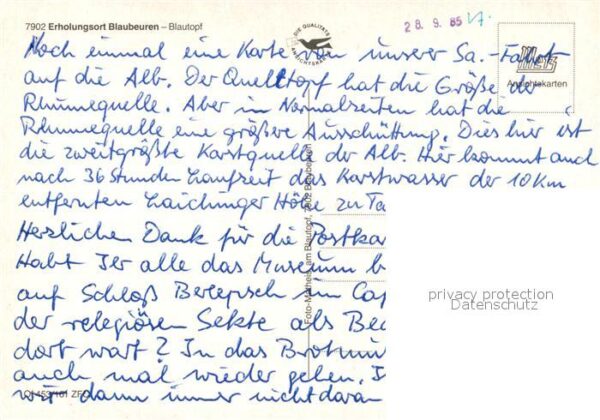 7902 Erholungsort Blaubeuren – Blautopf
DIE QUALITÄTS
ANSICHTSKARTE
28. 9. 85
Metz
Ansichtskarten
Noch einmal eine Karte von unserer Sa.-Fahrt
auf die Alb. Der Quelltopf hat die Größe der
Rhumequelle. Aber in Normalzeiten hat die
Rhumequelle eine größere Ausschüttung. Dies hier ist
die zweitgrößte Karstquelle der Alb. Hier kommt auch
nach 36 Stunden Laufzeit das Karstwasser der 10 Km
entfernten Laichinger Höhle zu Ta
Herzlichen Dank für die Postkar
Habt Ier alle das Museum b
auf Schloß Berlepsch im Cap
der relegiösen Sekte als Be
dort wart? In das Brotmu
auch mal wieder gehen. I
wir dann immer nicht daran
Foto-Matheis am Blautopf, 7902 Blaubeuren
privacy protection
Datenschutz